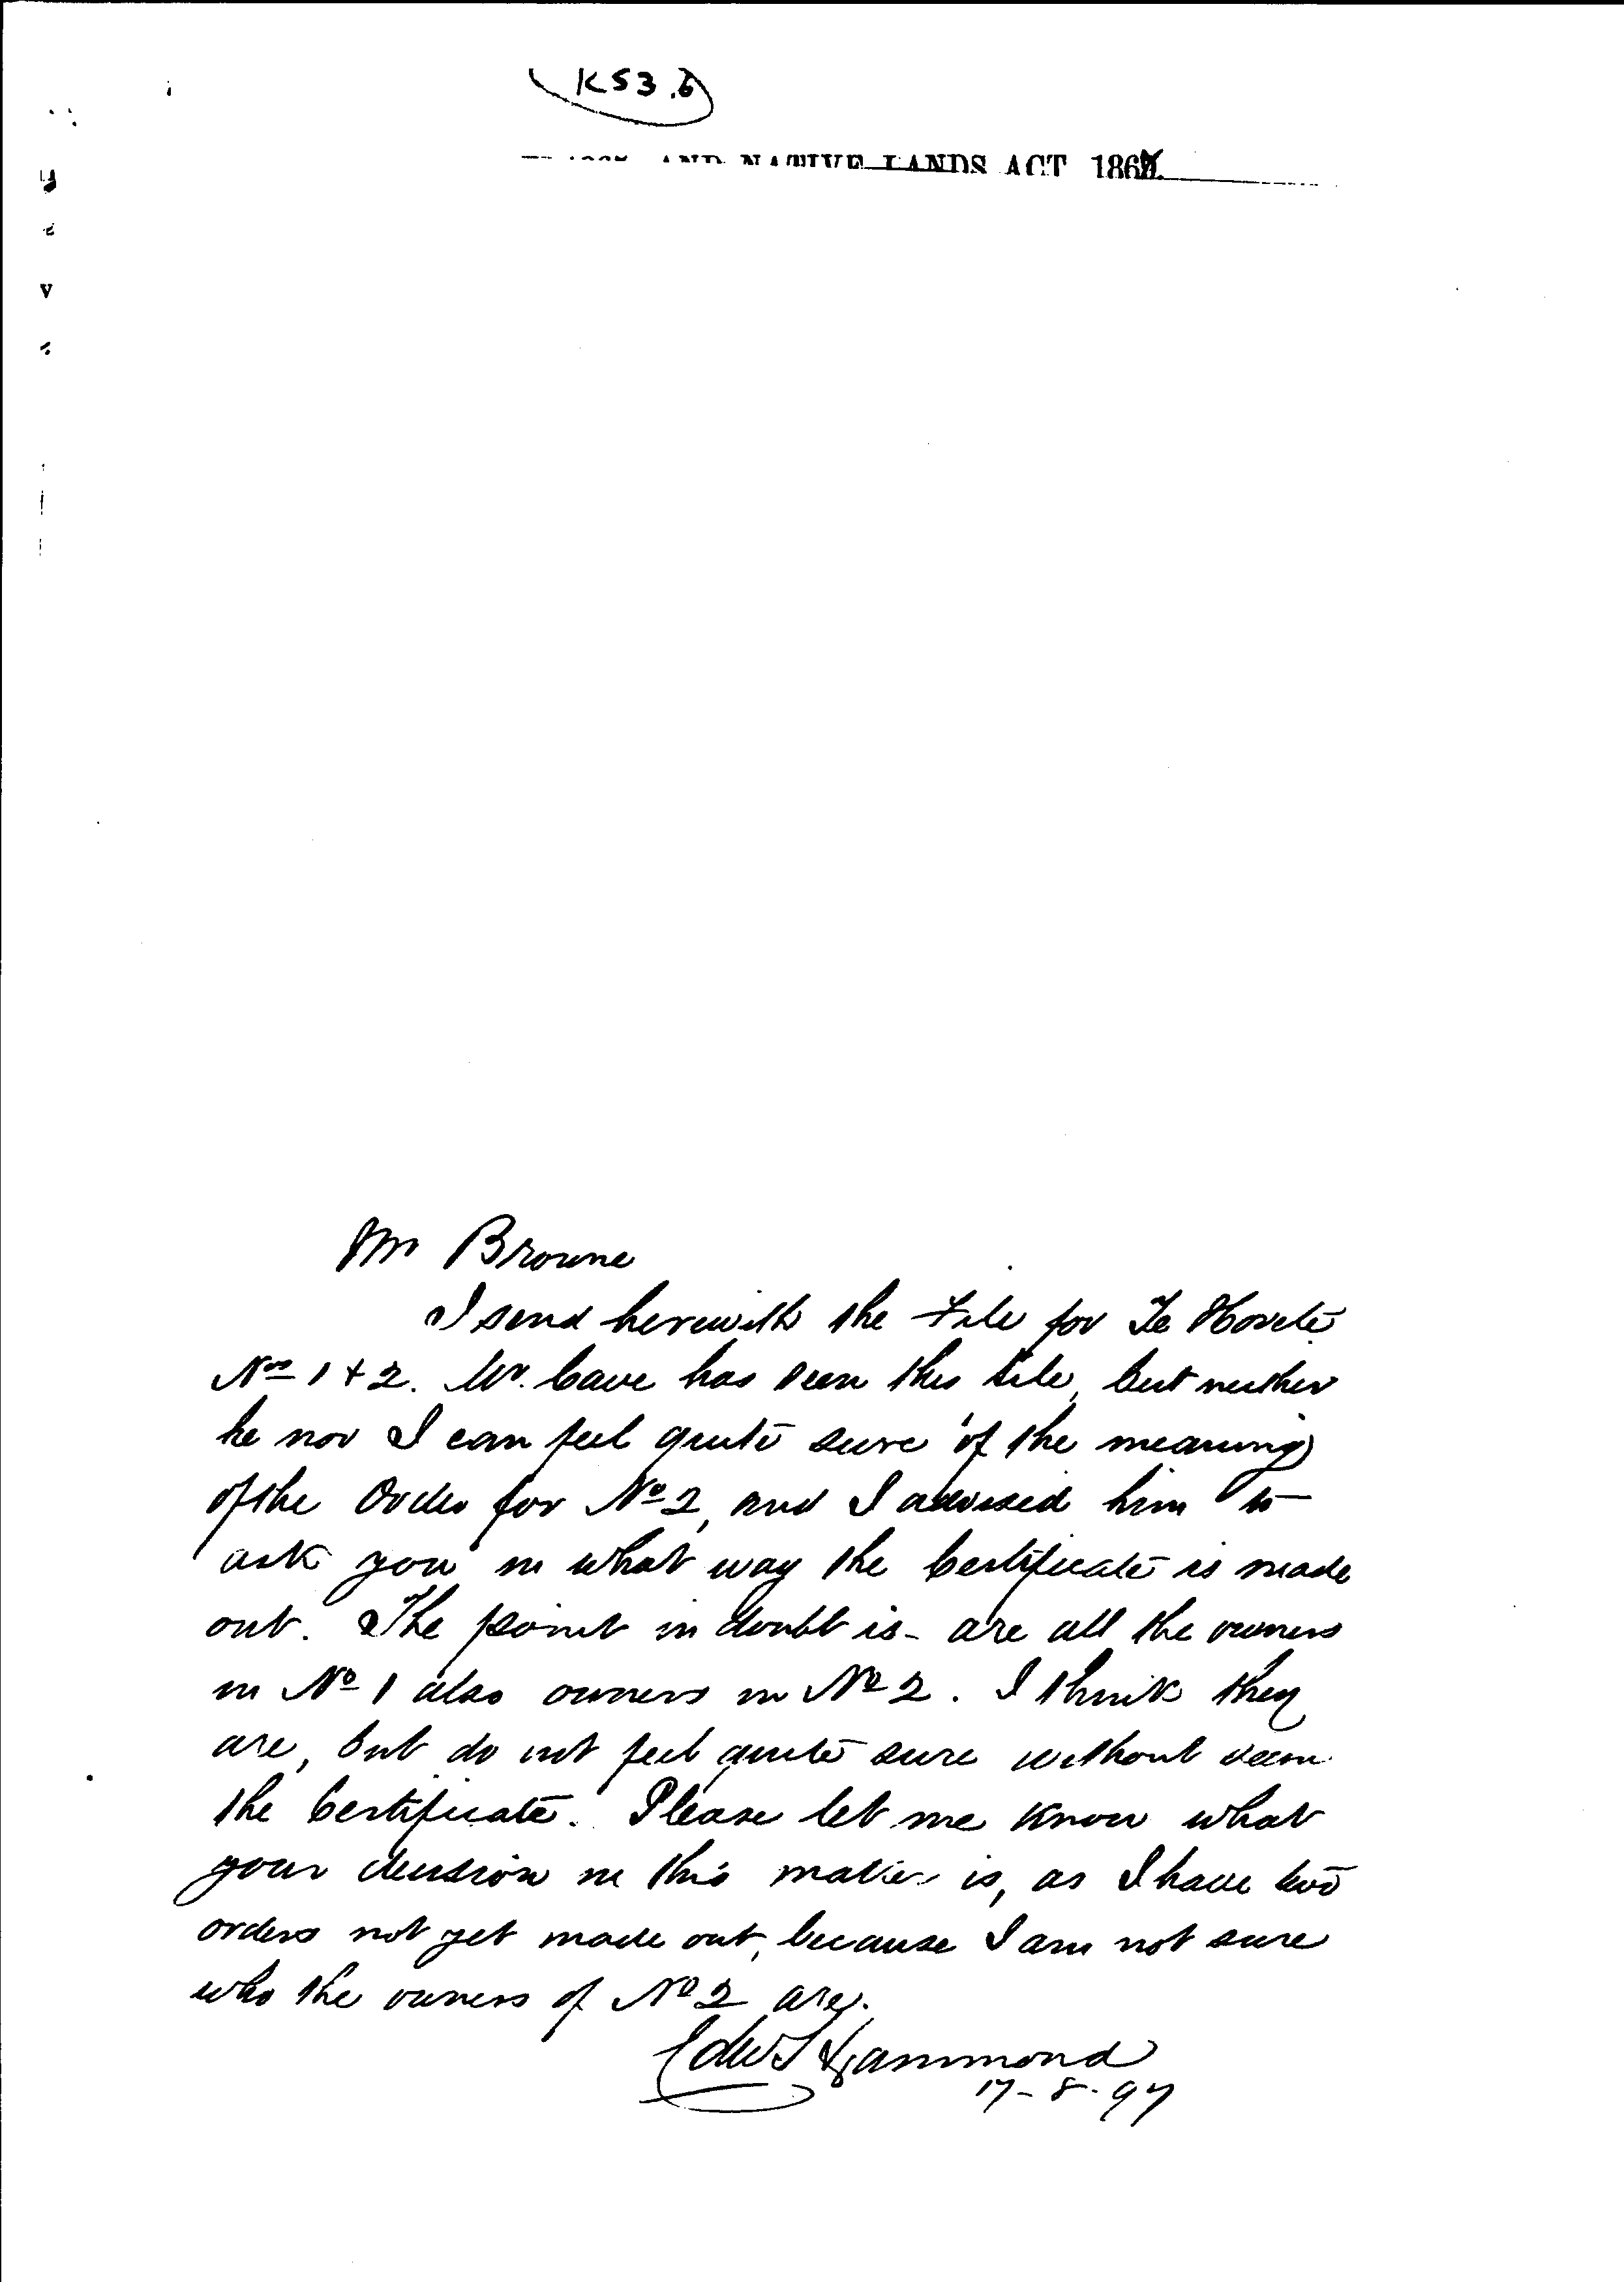 K53.6
AND NATIVE LANDS ACT 1867.
Mr Browne
I send herewith the File for Te Horete
Nos 1 + 2. Mr. Cave has seen this file, but neither
he nor I can feel quite sure of the meaning
of the Order for No 2, and I advised him to
ask you in what way the Certificate is made
out. The point in doubt is - are all the owners
in No 1 also owners in No 2. I think they
are, but do not feel quite sure without seein
the Certificate. Please let me know what
your decision in this matter is, as I have two
orders not yet made out, because I am not sure
who the owners of No 2 are.
Edw Hammond
17-8-97